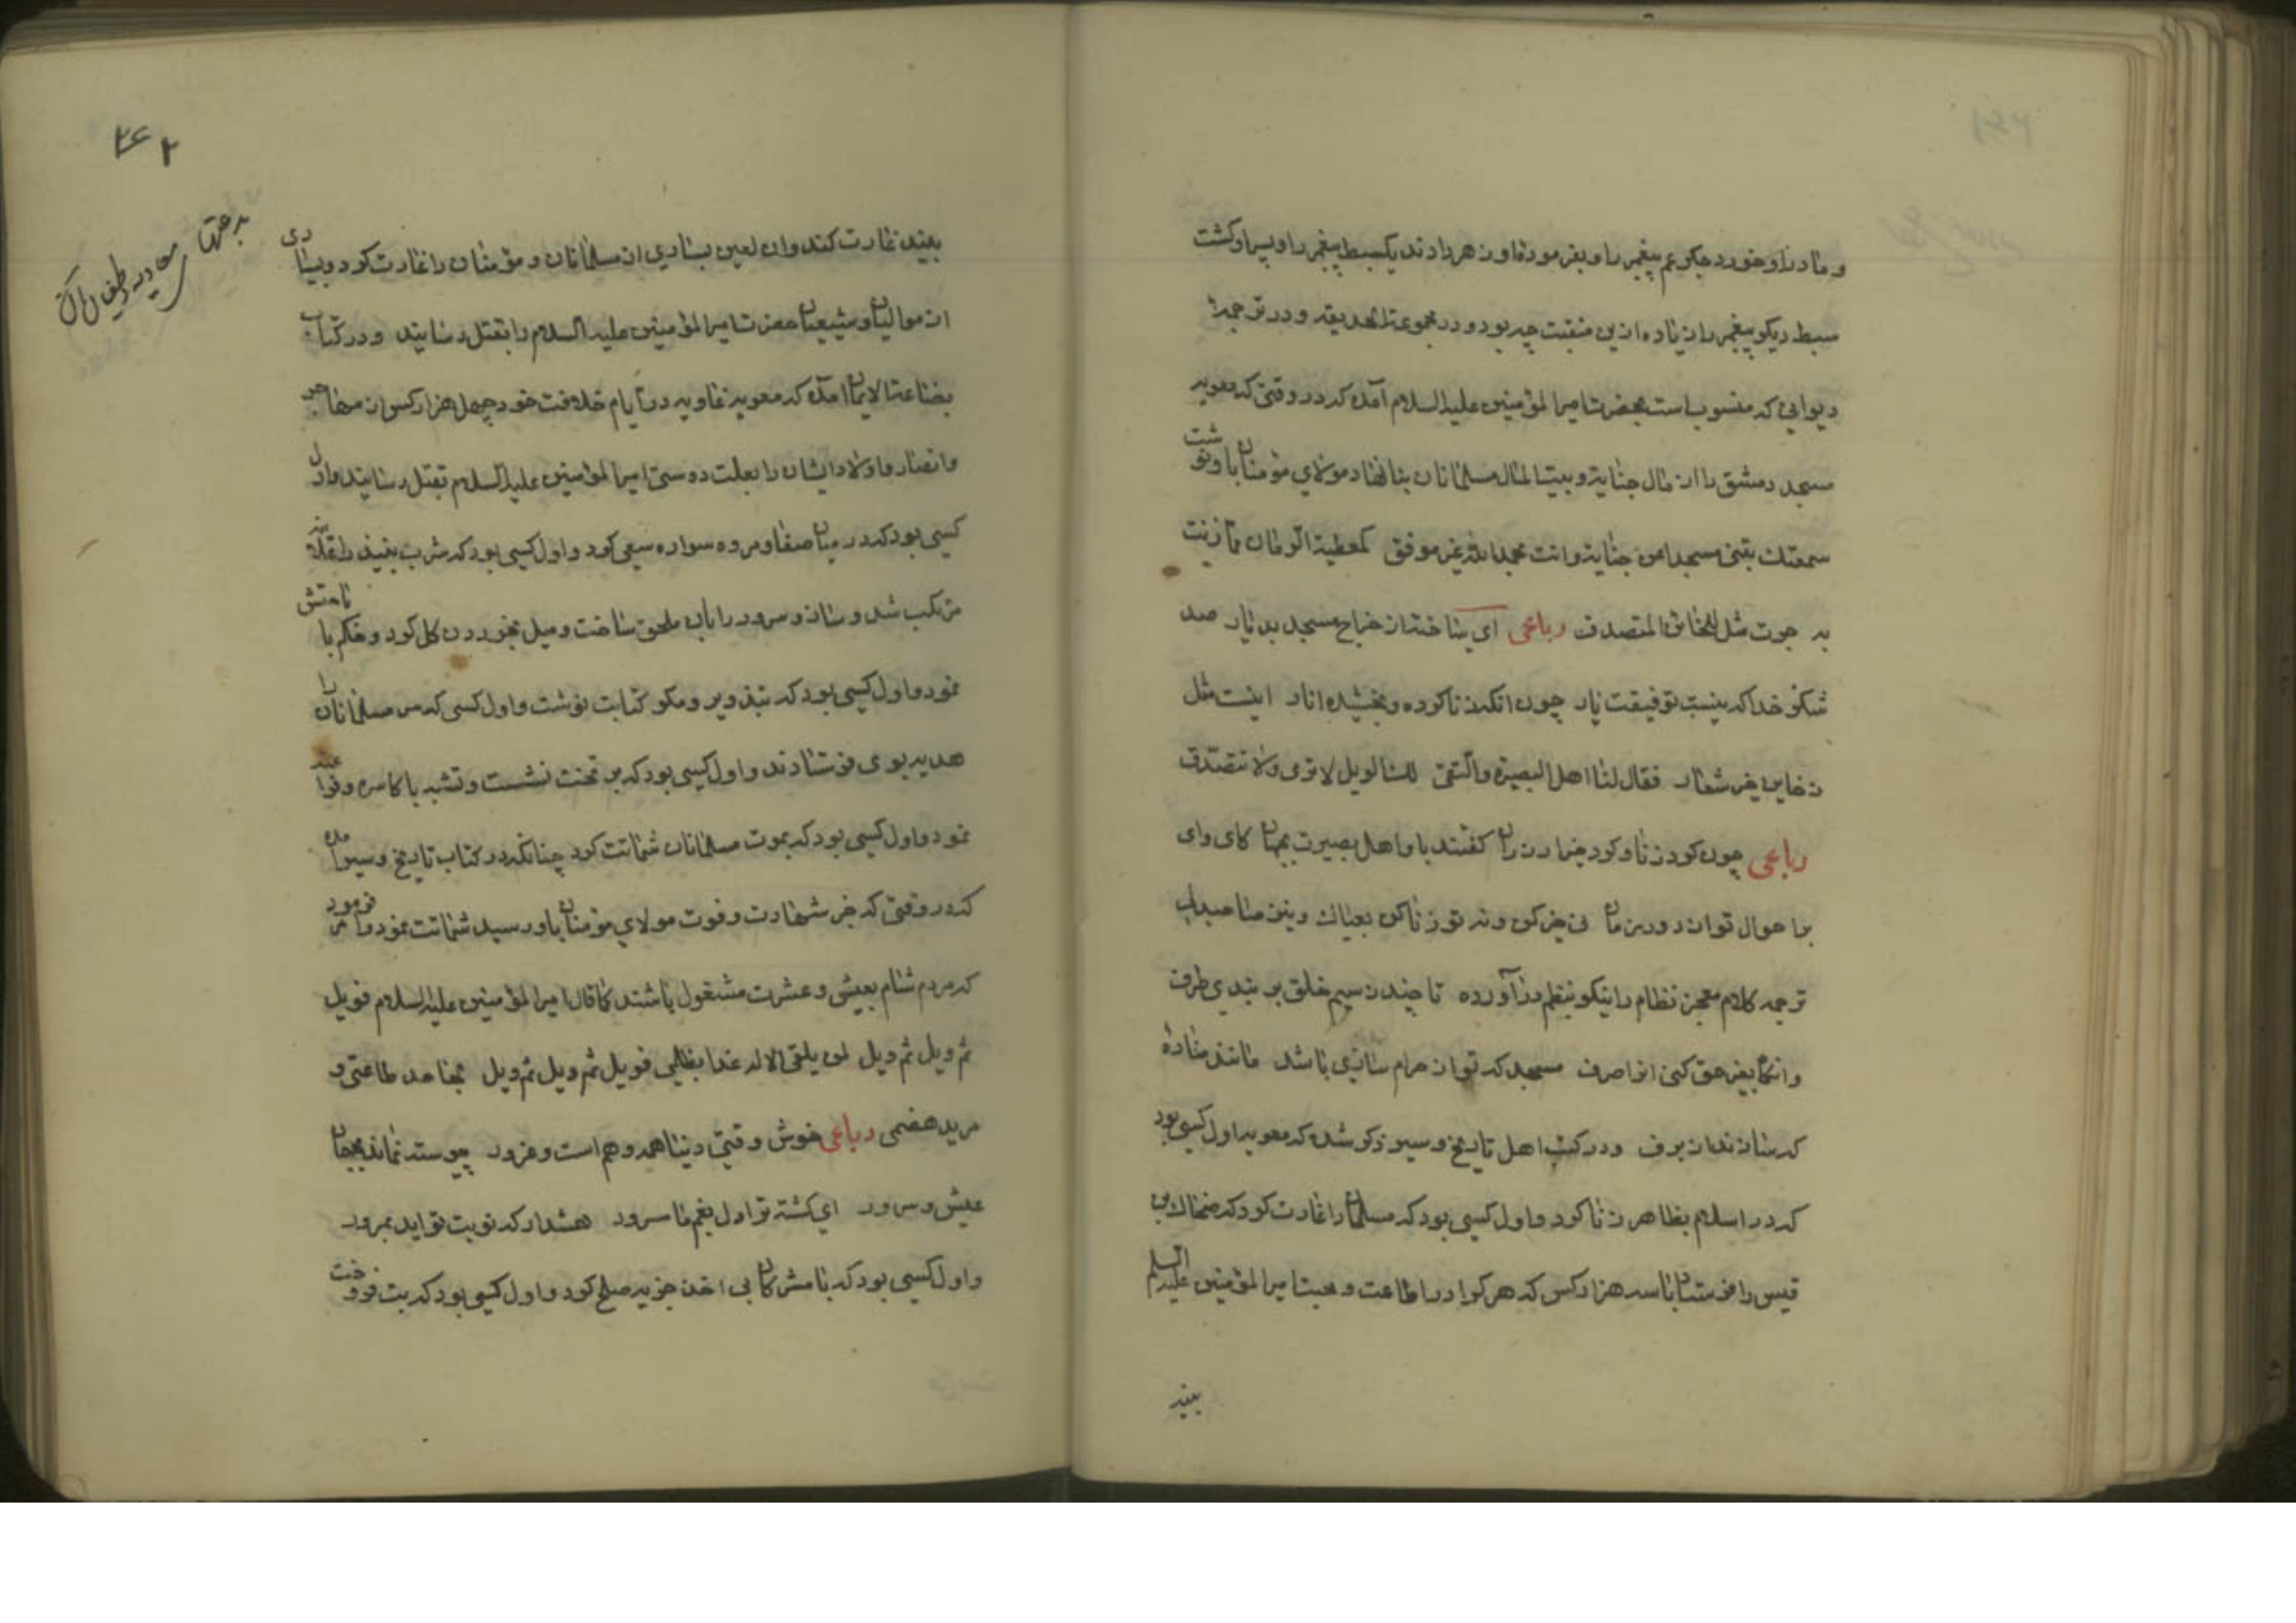 و مادر او خورد جگر عم پیغمبر را و بفرموده او زهر دادند یک سبط پیغمبر را و پسر او کشت
سبط دیگر پیغمبر را زیاده ازین منقبت چه بود و در مجموعة الحدیقه و در ترجمهٔ
دیوانی که منسوب است بحضرت امیرالمؤمنین علیه السلام آمده که در وقتی که معویه
مسجد دمشق را از مال جنایة و بیت المال مسلمانان بنا نهاد مولای مؤمنان باو نوشت
سمعتك تبنی مسجدا من جنایة وانت بحمد الله غیر موفق کمطعمة الرمان مما زنت
به جرت مثل للخائن المتصدق رباعی ای ساخته از خراج مسجد بدیار صد
شکر خدا که نیست توفیقت یار چون آنکه زنا کرده و بخشیده انار اینست مثل
ز خاین خیر شعار فقال لها اهل البصیرة والتقی لك الویل لا تزنی ولا تتصدق
رباعی چون کرد زنا و کرد خیر آن زن را گفتند باو اهل بصیرت بجهان کای وای
بر احوال تو از دور زمان نی خیر کن و نه تو زنا کن بعیان و نیز صاحبدلی
ترجمه کلام معجز نظام را نیکو بنظم درآورده تا چند ز سیم خلق بر بندی طرف
وانگاه بغیر حق کنی آنرا صرف مسجد که تو از حرام سازی باشد مانند مناره
که سازند از برف و در کتب اهل تاریخ و سیر ذکر شده که معویه اول کسی بود
که در اسلام بظاهر زنا کرد و اول کسی بود که مسلمانان را غارت کرد که ضحاك بن
قیس را فرستاد با سه هزار کس که هر کرا در اطاعت و محبت امیرالمؤمنین علیه السلم
بیند
۲۶۲
بدعتها معاویه
بیند غارت کند و آن لعین بسیاری از مسلمانان و مؤمنان را غارت کرد و بسیاری
از موالیان و شیعیان حضرت امیرالمؤمنین علیه السلام را بقتل رسانید و در کتاب
بضاعة الایمان آمده که معویه غاویه در ایام خلافت خود چهل هزار کس از مهاجر
و انصار و اولاد ایشان را بعلت دوستی امیرالمؤمنین علیه السلام بقتل رسانید و اول
کسی بود که در میان صفا و مروه سواره سعی کرد و اول کسی بود که شرب نبیذ را علانیه
مرتکب شد و ساز و سرود را بآن ملحق ساخت و میل بخوردن گل کرد و حکم باباحتش
نمود و اول کسی بود که بتذویر و مکر کتابت نوشت و اول کسی که سر مسلمانان را
هدیه بوی فرستادند و اول کسی بود که بر تخت نشست و تشبه باکاسره و فراعنه
نمود و اول کسی بود که بموت مسلمانان شماتت کرد چنانکه در کتاب تاریخ و سیر آمده
که در وقتی که خبر شهادت و فوت مولای مؤمنان باو رسید شماتت نمود و امر فرمود
که مردم شام بعیش و عشرت مشغول باشند کما قال امیرالمؤمنین علیه السلام فویل
ثم ویل ثم ویل لمن یلقی الاله غدا بظلمی فویل ثم ویل ثم ویل لجاحد طاعتی و
مرید هضمی رباعی خوش وقتی دنیا همه وهم است و غرور پیوسته نماند بجهان
عیش و سرور ای گشته ترا دل بغم ما مسرور هشدار که نوبت تو آید بمرور
و اول کسی بود که با مشرکان بی اخذ جزیه صلح کرد و اول کسی بود که بت فروخت